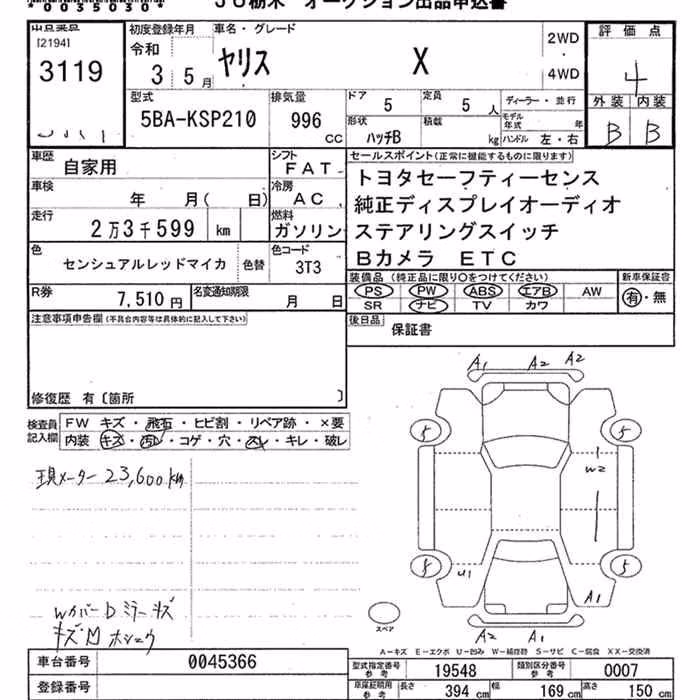 *0055030*
JU栃木 オークション出品申込書
出品番号
[2194]
3119
初度登録年月
令和
3 5月
車名・グレード
ヤリス X
2WD
・
4WD
評価点
4
外装 内装
B B
型式
5BA-KSP210
排気量
996
cc
ドア
5
定員
5 人
ディーラー・並行
形状
ハッチB
積載
kg
モデル年式 年
ハンドル 左・右
車歴
自家用
シフト
FAT
車検
年 月( 日)
冷房
AC
走行
2万3千599 km
燃料
ガソリン
色
センシュアルレッドマイカ
色替
色コード
3T3
R券
7,510円
名変通知期限
月 日
セールスポイント(正常に機能するものに限ります)
トヨタセーフティーセンス
純正ディスプレイオーディオ
ステアリングスイッチ
Bカメラ ETC
装備品(純正品に限り○をつけてください)
PS PW ABS エアB AW
SR ナビ TV カワ
新車保証書
有・無
後日品
保証書
注意事項申告欄(不具合内容等は具体的に記入して下さい)
修復歴 有〔箇所 〕
検査員記入欄
FW キズ・飛石・ヒビ割・リペア跡・×要
内装 キズ・汚レ・コゲ・穴・スレ・キレ・破レ
現メーター 23,600km
WカバーDミラーキズ
キズ・M ホシュウ
A1 A2 A2
5 5
W2
5 5
U1
A1
A2 A1
スペア
A-キズ E-エクボ U-凹み W-補修跡 S-サビ C-腐食 XX-交換済
車台番号
0045366
登録番号
型式指定番号参考
19548
類別区分番号参考
0007
車庫証明用参考
長さ 394 cm
幅 169 cm
高さ 150 cm